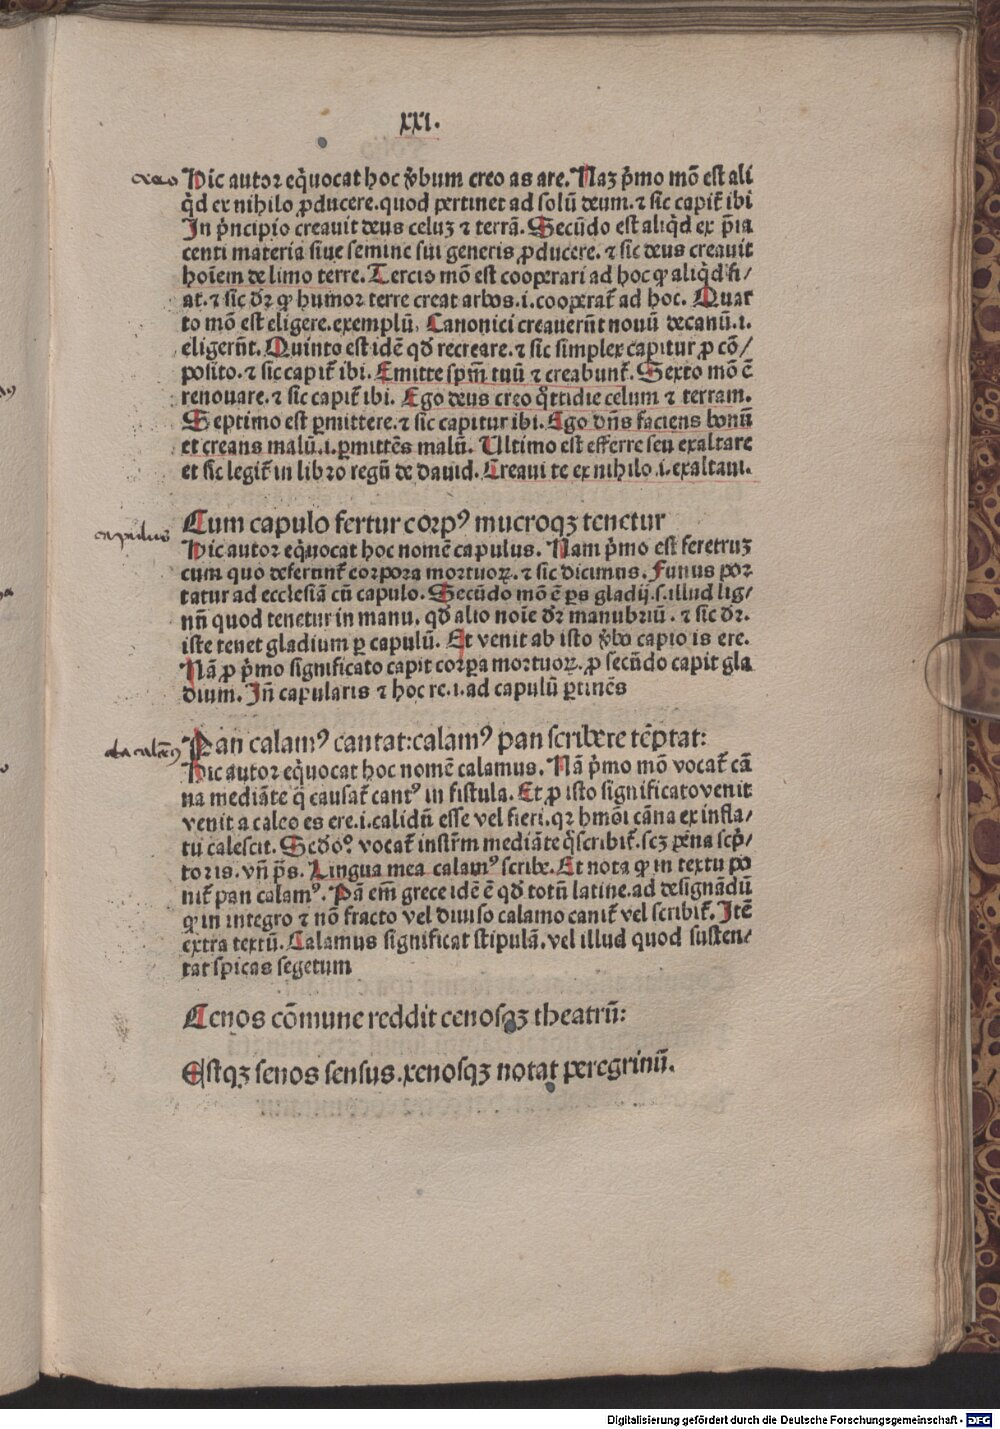 xxi.
creo
Hic autor eq̇uocat hoc v̄bum creo as are. Naꝫ p̄mo mō est ali
q̇d ex nihilo ꝓducere. quod pertinet ad solū deum. ⁊ sic capit̄ ibi
In p̄ncipio creauit deus celuꝫ ⁊ terrā. Secūdo est aliq̇d ex p̄ia
centi materia siue semine sui generis ꝓducere. ⁊ sic deus creauit
hoīem de limo terre. Tercio mō est cooperari ad hoc ꝙ aliq̇d fi/
at. ⁊ sic dr̄ ꝙ humor terre creat arbos. i. cooperat̄ ad hoc. Quar
to mō est eligere. exemplū. Canonici creauerūt nouū decanū. i.
eligerūt. Quinto est idē qd̄ recreare. ⁊ sic simplex capitur ꝓ cō/
posito. ⁊ sic capit̄ ibi. Emitte spm̄ tuū ⁊ creabunt̄. Sexto mō ē
renouare. ⁊ sic capit̄ ibi. Ego deus creo q̊ttidie celum ⁊ terram.
Septimo est ꝑmittere. ⁊ sic capitur ibi. Ego dn̄s faciens bonū
et creans malū. i. ꝑmittēs malū. Ultimo est efferre seu exaltare
et sic legit̄ in libro regū de dauid. Creaui te ex nihilo. i. exaltaui.
capulus
Cum capulo fertur corpꝰ mucroqꝫ tenetur
Hic autor eq̇uocat hoc nomē capulus. Nam p̄mo est feretruꝫ
cum quo deferunt̄ corpora mortuoꝝ. ⁊ sic dicimus. Funus por
tatur ad ecclesiā cū capulo. Secūdo mō ē ꝑs gladij. s. illud lig/
nū quod tenetur in manu. qd̄ alio noīe dr̄ manubriū. ⁊ sic dr̄.
iste tenet gladium ꝑ capulū. Et venit ab isto v̄bo capio is ere.
Nā ꝓ p̄mo significato capit corpa mortuoꝝ. ꝓ secūdo capit gla
dium. Iñ capularis ⁊ hoc re. i. ad capulū ꝑtinēs
Pan calamꝰ cantat: calamꝰ pan scribere tēptat:
Hic autor eq̇uocat hoc nomē calamus. Nā p̄mo mō vocat̄ cā
na mediāte q̄ causat̄ cantꝰ in fistula. Et ꝓ isto significato venit
venit a caleo es ere. i. calidū esse vel fieri. qꝛ hmōi cāna ex infla/
tu calescit. Scdo°. vocat̄ instr̄m mediāte q̊ scribit̄. scꝫ pēna scp̄/
toris. vñ p̄s. Lingua mea calamꝰ scribe. Et nota ꝙ in textu po
nit̄ pan calamꝰ. Pā em̄ grece idē ē qd̄ totū latine. ad designādū
ꝙ in integro ⁊ nō fracto vel diuiso calamo canit̄ vel scribit̄. Itē
extra textū. Calamus significat stipulā. vel illud quod susten/
tat spicas segetum
Cenos cōmune reddit cenosqꝫ theatrū:
Estqꝫ senos sensus. xenosqꝫ notat peregrinū.
Digitalisierung gefördert durch die Deutsche Forschungsgemeinschaft - DFG